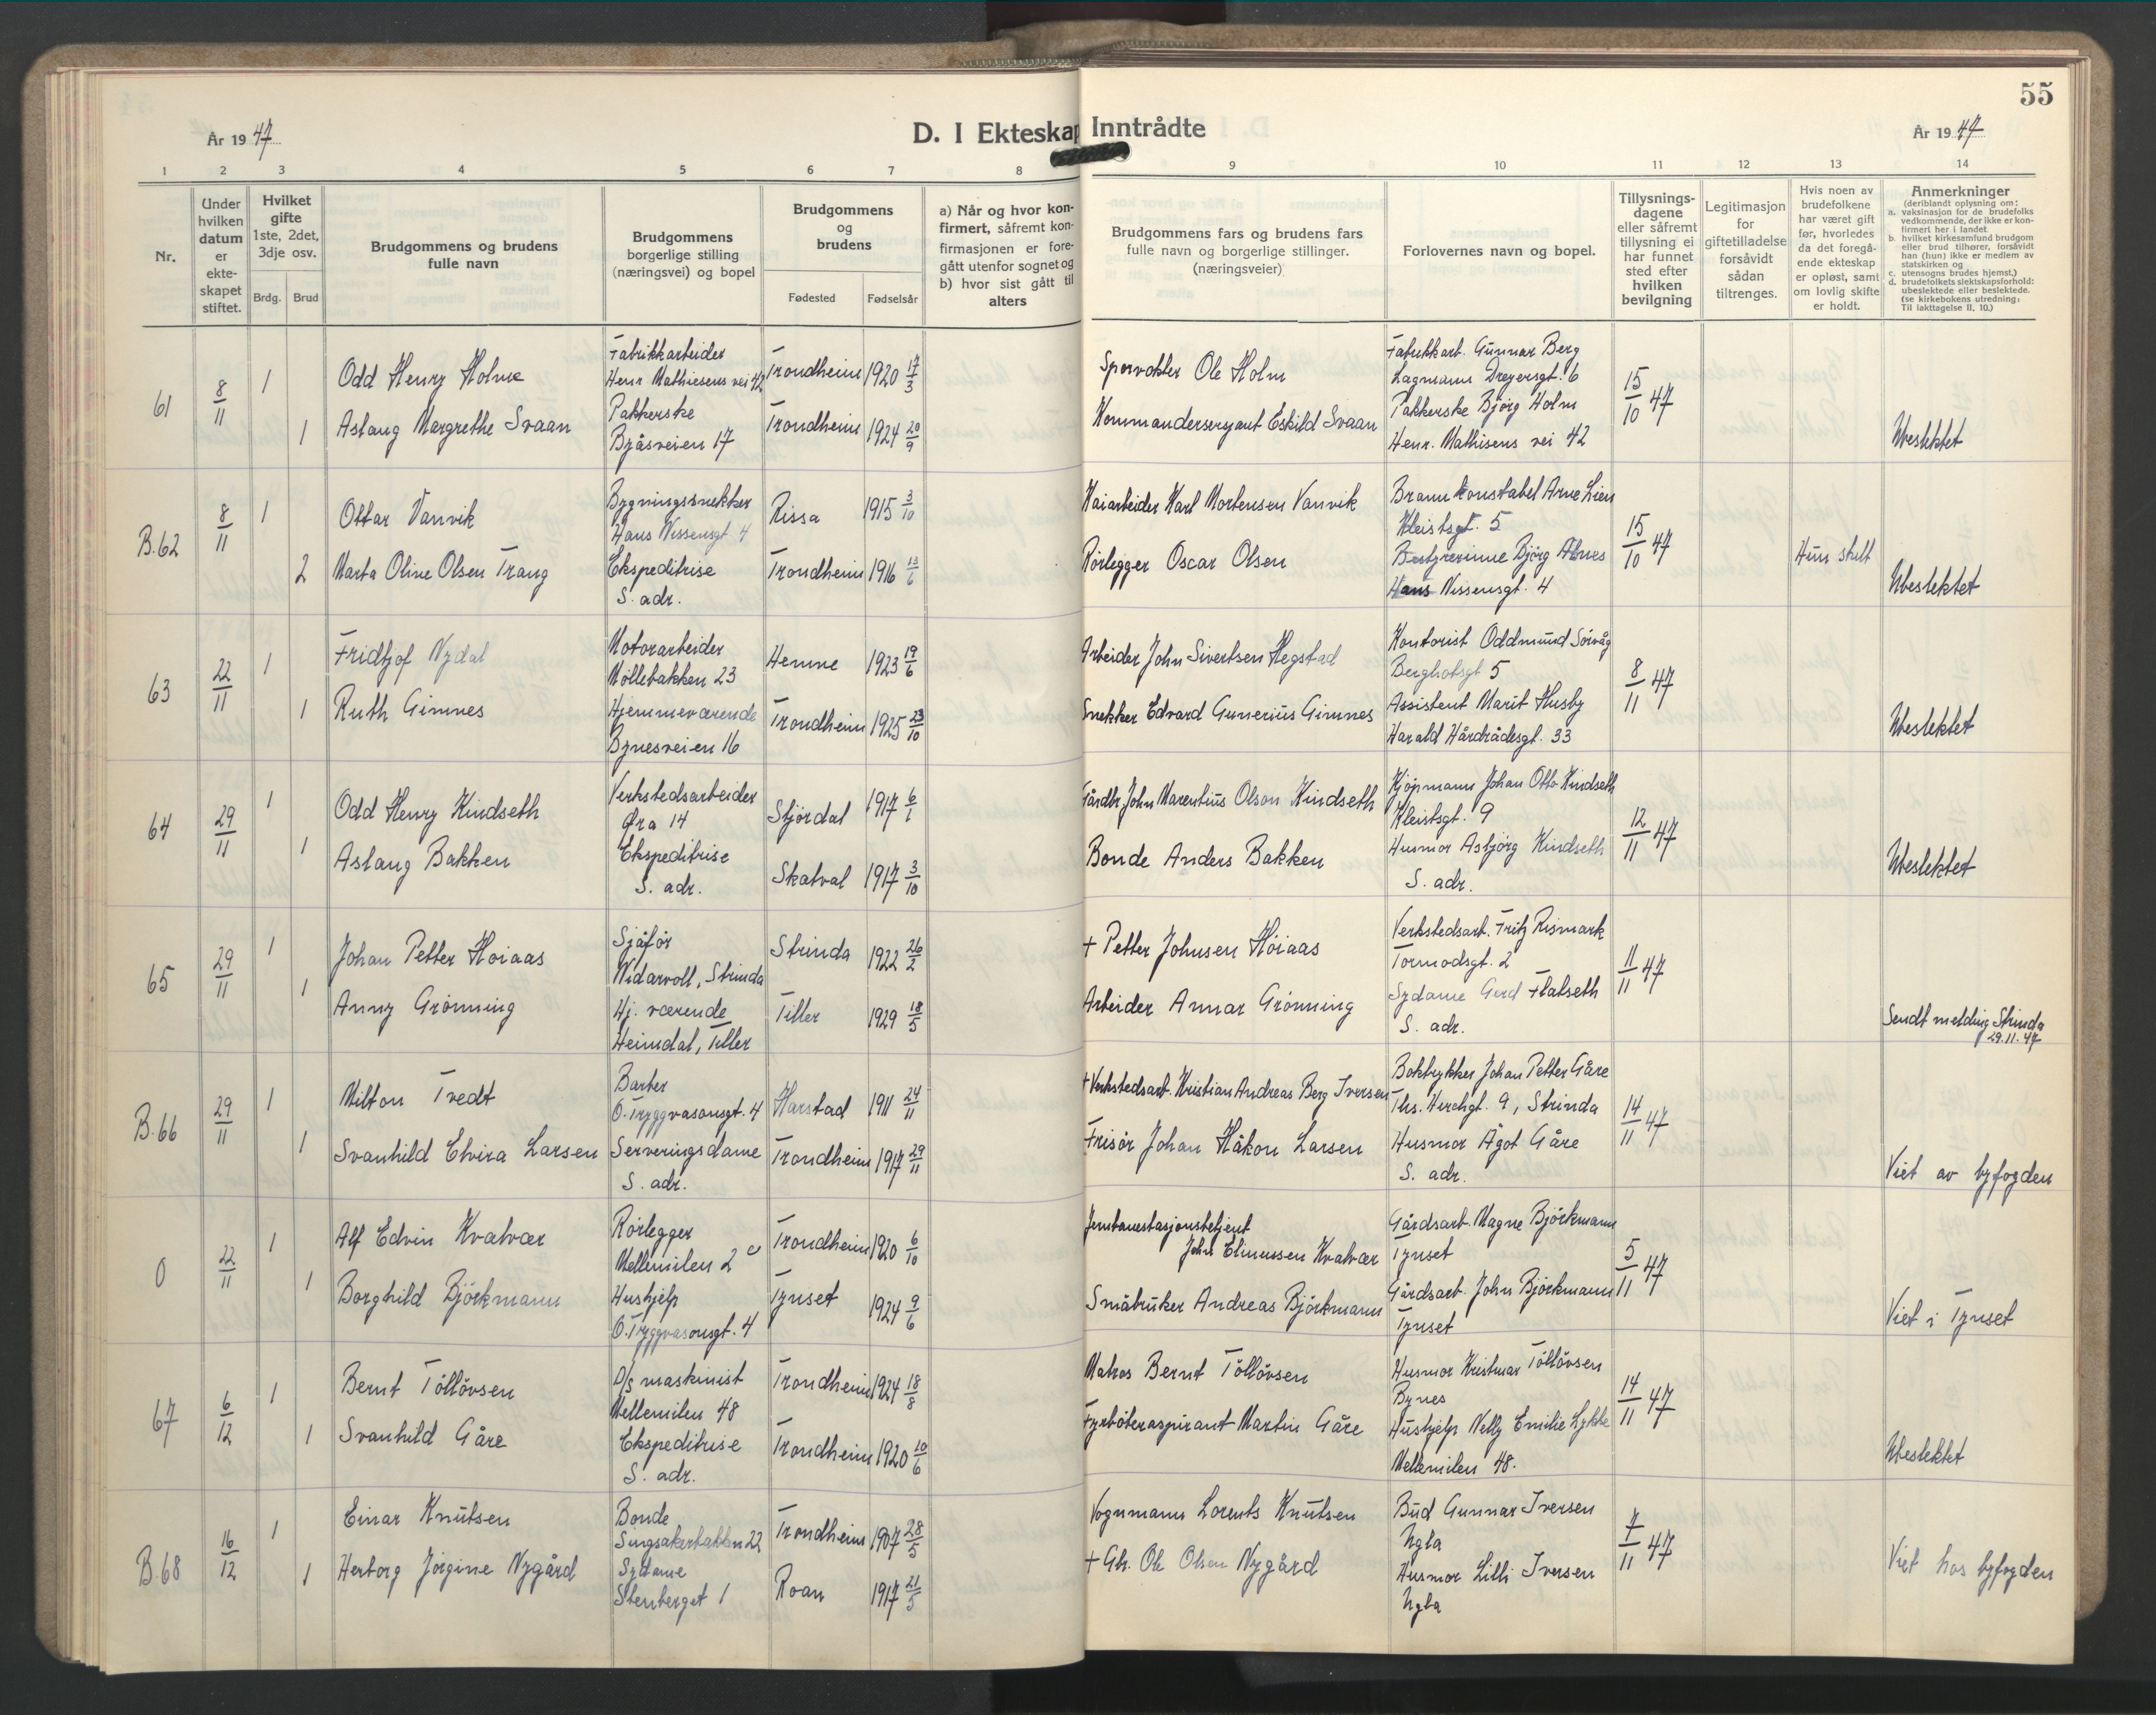 55
År 1947
D. I Ekteskap Inntrådte
År 1947
1 2 3 4 5 6 7 8 9 10 11 12 13 14
Nr.
Under hvilken datum er ekte-skapet stiftet.
Hvilket gifte 1ste, 2det, 3dje osv.
Brdg. Brud
Brudgommens og brudens fulle navn
Brudgommens borgerlige stilling (næringsvei) og bopel
Brudgommens og brudens
Fødested Fødselsår
a) Når og hvor kon-firmert, såfremt kon-firmasjonen er fore-gått utenfor sognet og b) hvor sist gått til alters
Brudgommens fars og brudens fars fulle navn og borgerlige stillinger. (næringsveier)
Forlovernes navn og bopel.
Tillysnings-dagene eller såfremt tillysning ei har funnet sted efter hvilken bevilgning
Legitimasjon for giftetilladelse forsåvidt sådan tiltrenges.
Hvis noen av brudefolkene har været gift før, hvorledes da det foregå-ende ekteskap er opløst, samt om lovlig skifte er holdt.
Anmerkninger
(deriblandt oplysning om:
a. vaksinasjon for de brudefolks vedkommende, der ikke er kon-firmert her i landet
b. hvilket kirkesamfund brudgom eller brud tilhører, forsåvidt han (hun) ikke er medlem av statskirken og
c. utensogns brudes hjemst.)
d. brudefolkets slektskapsforhold: ubeslektede eller beslektede. (se kirkebokens utredning: Til iakttagelse II, 10.)
61 8/11 1 Odd Henry Holm Fabrikkarbeider Trondheim 1920 17/3 Sporvokter Ole Holm Fabrikkarb. Gunnar Berg 15/10 47
Henr. Mathiesens vei 42 Lagmann Dreyersgt. 6
1 Aslaug Margrethe Svaan Pakkerske Trondheim 1924 20/9 Kommandersersjant Eskild Svaan Pakkerske Bjørg Holm
Byåsveien 17 Henr. Mathisens vei 42 Ubeslektet
B.62 8/11 1 Ottar Vanvik Bygningssnekker Rissa 1915 3/10 Kaiarbeider Karl Mortensen Vanvik Brannkonstabel Arne Lien 15/10 47
Hans Nissensgt. 4 Kleistsgt. 5
2 Marta Oline Olsen Trang Ekspeditrise Trondheim 1916 Rörlegger Oscar Olsen Bestyrerinne Bjørg Hun skilt
S. adr. Hans Nissensgt. 4 Ubeslektet
63 22/11 1 Fridtjof Nydal Motorarbeider Hemne 1923 19/6 Arbeider John Sivertsen Hegstad Kontorist Oddmund Sörvåg 8/11 47
Möllebakken 23 5
1 Ruth Gimnes Hjemmeværende Trondheim 1925 23/10 Snekker Edvard Gunerius Gimnes Assistent Marit Husby
Bynesveien 16 Harald Hårdrådesgt. 33 Ubeslektet
64 29/11 1 Odd Henry Kindseth Verkstedsarbeider Stjördal 1917 Gårdbr. John Marentius Olson Kindseth Kjöpmann Johan Otto Kindseth 12/11 47
Øra 14 Kleistsgt. 9
1 Aslaug Bakken Ekspeditrise Skatval 1917 3/10 Bonde Anders Bakken Husmor Asbjörg Kindseth
S. adr. S. adr. Ubeslektet
65 29/11 1 Johan Petter Höiaas Sjåför Strinda 1922 26/2 + Petter Johnsen Höiaas Verkstedsarb. Fritz Rismark 11/11 47
Widarvoll, Strinda Tormodsgt. 2
1 Anny Grönning Hj. værende Tiller 1929 18/5 Arbeider Annar Grönning Sydame Gerd Flatseth
Heimdal, Tiller S. adr. Sendt melding Strinda 29.11.47
B.66 29/11 1 Milton Tvedt Barber Harstad 1911 24/11 + Verkstedsarb. Kristian Andreas Berg Iversen Boktrykker Johan Petter Gåre 14/11 47
O. Tryggvasonsgt. 4 9, Strinda
1 Svanhild Elvira Larsen Serveringsdame Trondheim 1917 29/11 Frisör Johan Håkon Larsen Husmor Ågot Gåre
S. adr. S. adr. Viet av byfogden
0 22/11 1 Alf Edvin Kvalvær Rörlegger Trondheim 1920 6/10 Jernbanestasjonsbetjent Gårdsarb. Magne Björkmann 5/11 47
Mellemilen 2 c John Elinussen Kvalvær Tynset
1 Borghild Björkmann Hushjelp Tynset 1924 9/6 Småbruker Andreas Björkmann Gårdsarb. John Björkmann
O. Tryggvasonsgt. 4 Tynset Viet i Tynset
67 6/12 1 Bernt Töllövsen D/s maskinist Trondheim 1924 18/8 Matros Bernt Töllövsen Husmor Kristmar Töllövsen 14/11 47
Mellemilen 48 Bynes
1 Svanhild Gåre Ekspeditrise Trondheim 1920 10/6 Fyrböteraspirant Martin Gåre Hushjelp Nelly Emilie Lykke
S. adr. Mellemilen 48. Ubeslektet
B.68 16/12 1 Einar Knutsen Bonde Trondheim 1907 28/5 Vognmann Lorents Knutsen Bud Gunnar Iversen 7/11 47
Singsakerbakken 22 Ugla
1 Herborg Jörgine Nygård Sydame Roan 1917 21/5 + Gb. Ole Olsen Nygård Husmor Lilli Iversen
Stenberget 1 Ugla Viet hos byfogden